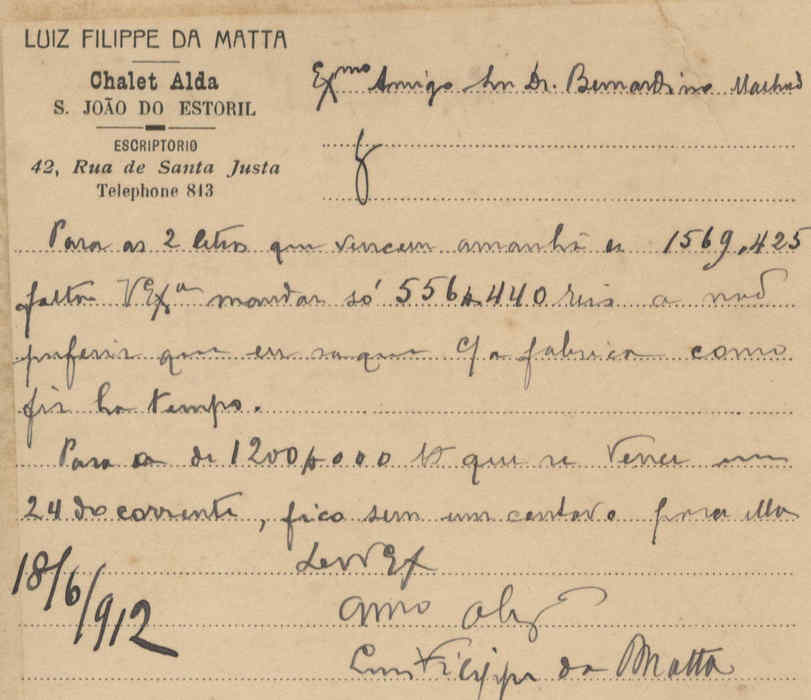 LUIZ FILIPPE DA MATTA
Chalet Alda
S. JOÃO DO ESTORIL
ESCRIPTORIO
42, Rua de Santa Justa
Telephone 813
Exmo Amigo Snr Dr. Bernardino Machado
Para as 2 letras que vencem amanhã es 1569,425
falta V Exa mandar só 556$440 reis a não
preferir que eu saque c/a fabrica como
fiz ha tempo.
Para a de 1200$000 rs que se vence em
24 do corrente, fico sem um centavo para ella
De V Ex
amo obg
Luiz Filippe da Matta
18/6/912